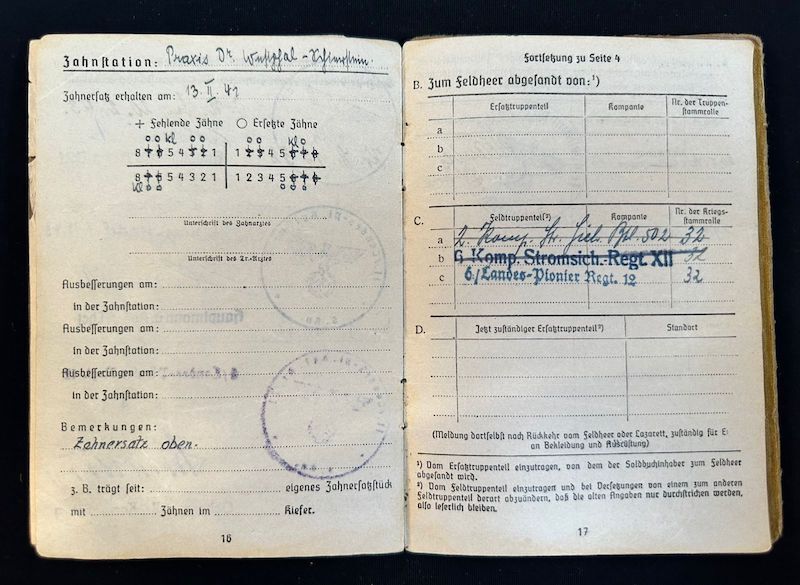 Zahnstation: Praxis Dr. Westphal - Schierstein.
Zahnersatz erhalten am: 13. II. 41
+ Fehlende Zähne ○ Ersetzte Zähne
8 7 6 5 4 3 2 1 | 1 2 3 4 5 6 7 8
8 7 6 5 4 3 2 1 | 1 2 3 4 5 6 7 8
Unterschrift des Zahnarztes
Unterschrift des Tr.-Arztes
Ausbesserungen am:
in der Zahnstation:
Ausbesserungen am:
in der Zahnstation:
Ausbesserungen am:
in der Zahnstation:
Bemerkungen:
Zahnersatz oben.
z. B. trägt seit: eigenes Zahnersatzstück
mit Zähnen im Kiefer.
16
Fortsetzung zu Seite 4
B. Zum Feldheer abgesandt von:¹)
Ersatztruppenteil Kompanie Nr. der Truppenstammrolle
a
b
c
C. Feldtruppenteil²) Kompanie Nr. der Kriegsstammrolle
a 2. Komp. Str. Sich. Btl. 502 32
b 6 Komp. Stromsich.-Regt. XII 32
c 6./Landes-Pionier Regt. 12 32
D. Jetzt zuständiger Ersatztruppenteil²) Standort
(Meldung dortselbst nach Rückkehr vom Feldheer oder Lazarett, zuständig für E
an Bekleidung und Ausrüstung)
¹) Vom Ersatztruppenteil einzutragen, von dem der Soldbuchinhaber zum Feldheer
abgesandt wird.
²) Vom Feldtruppenteil einzutragen und bei Versetzungen von einem zum anderen
Feldtruppenteil derart abzuändern, daß die alten Angaben nur durchstrichen werden,
also leserlich bleiben.
17